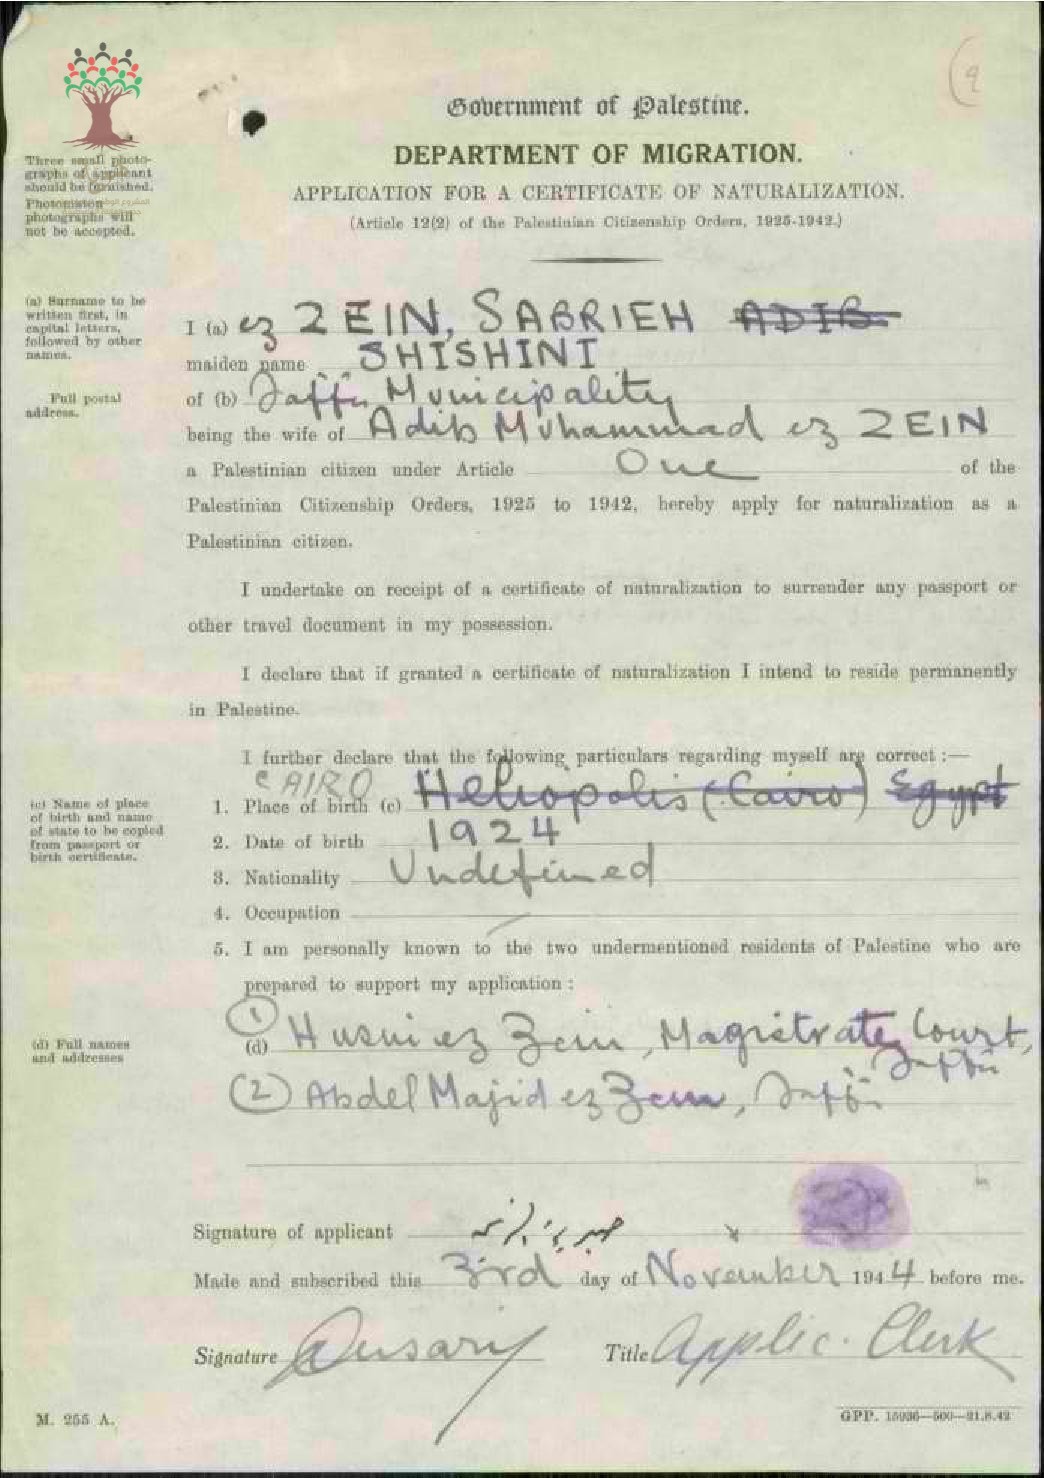 9
Government of Palestine.
DEPARTMENT OF MIGRATION.
APPLICATION FOR A CERTIFICATE OF NATURALIZATION.
(Article 12(2) of the Palestinian Citizenship Orders, 1925-1942.)
Three small photo-
graphs of applicant
should be furnished.
Photomaton
photographs will
not be accepted.
(a) Surname to be
written first, in
capital letters,
followed by other
names.
I (a) ez ZEIN, SABRIEH ADIB
maiden name SHISHINI
Full postal
address.
of (b) Jaffa Municipality
being the wife of Adib Muhammad ez ZEIN
a Palestinian citizen under Article One of the
Palestinian Citizenship Orders, 1925 to 1942, hereby apply for naturalization as a
Palestinian citizen.
I undertake on receipt of a certificate of naturalization to surrender any passport or
other travel document in my possession.
I declare that if granted a certificate of naturalization I intend to reside permanently
in Palestine.
I further declare that the following particulars regarding myself are correct :—
CAIRO
(c) Name of place
of birth and name
of state to be copied
from passport or
birth certificate.
1. Place of birth (c) Heliopolis (Cairo) Egypt
2. Date of birth 1924
3. Nationality Undefined
4. Occupation —
5. I am personally known to the two undermentioned residents of Palestine who are
prepared to support my application :
(d) Full names
and addresses
(1)
(d) Husni ez Zein, Magistrate Court,
Jaffa
(2) Abdel Majid ez Zein, Jaffa
Signature of applicant
Made and subscribed this 3rd day of November 1944 before me.
Signature Title Applic. Clerk
M. 255 A.
GPP. 15036—500—21.8.42